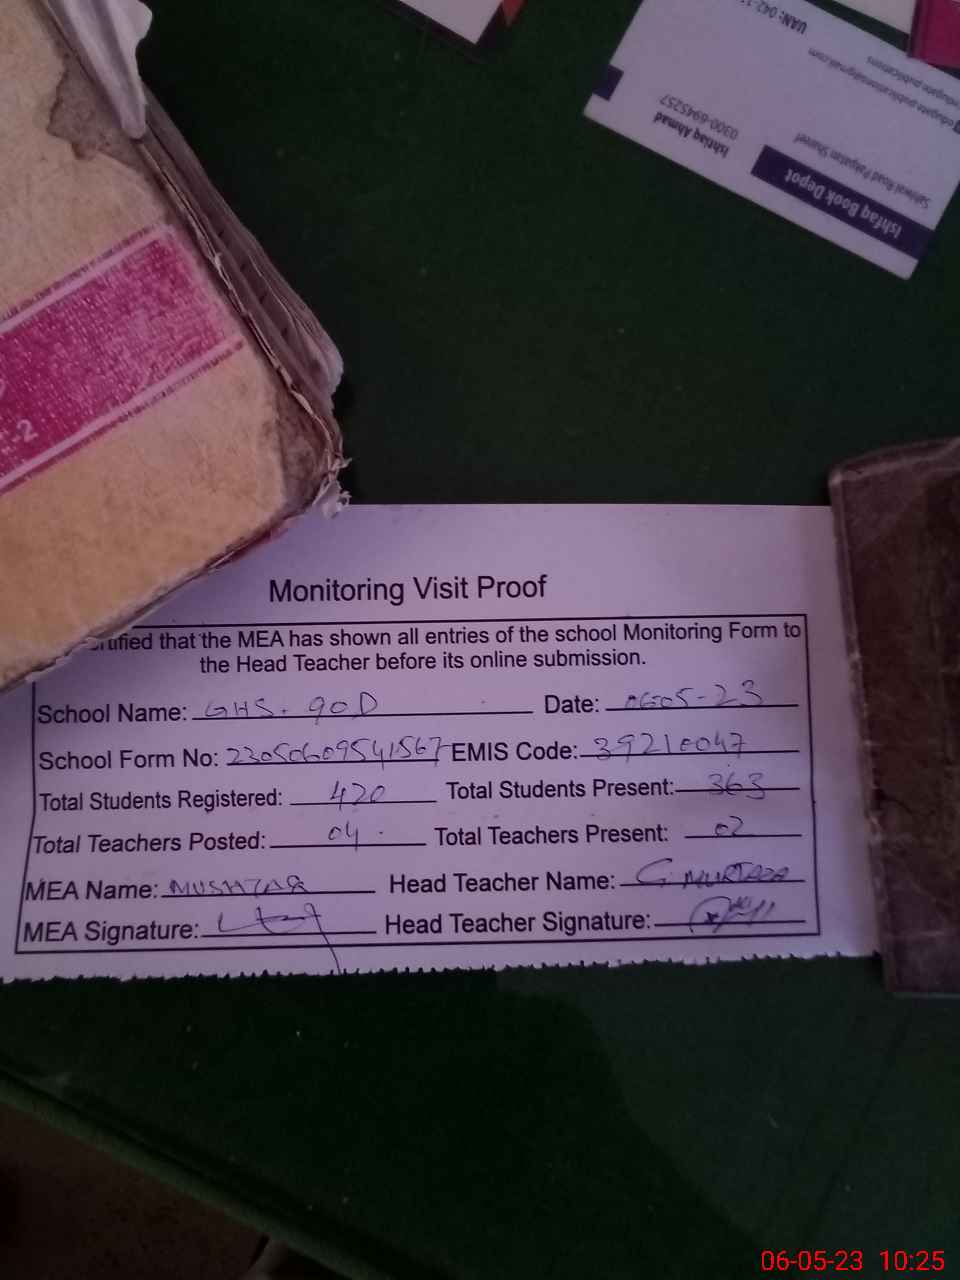 UAN: 042-
edugate.publications@gmail.com
edugate publications
Ishtiaq Ahmad
0300-6945257
Ishfaq Book Depot
Sahiwal Road Pakpattan Shareef
-2
Monitoring Visit Proof
rtified that the MEA has shown all entries of the school Monitoring Form to
the Head Teacher before its online submission.
School Name: GHS. 90D Date: 0605-23
School Form No: 23050609541567 EMIS Code: 39210047
Total Students Registered: 420 Total Students Present: 363
Total Teachers Posted: 04. Total Teachers Present: 02
MEA Name: MUSHTAQ Head Teacher Name: G. MURTAZA
MEA Signature: Head Teacher Signature:
06-05-23 10:25